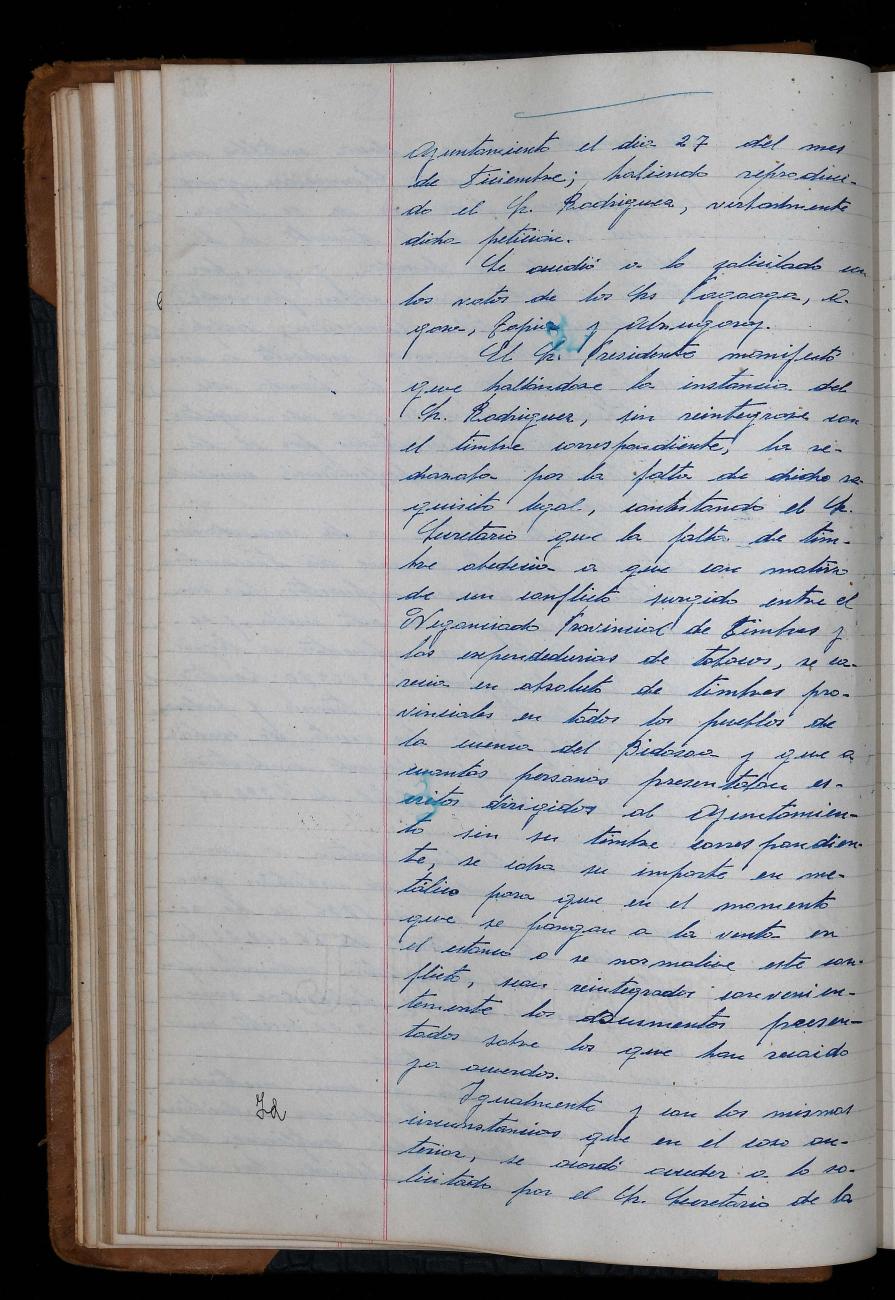 Ayuntamiento el dia 27 del mes
de Diciembre; habiendo reproduci-
do el Sr. Rodriguez, verbalmente
dicha petición.
Se accedió a lo solicitado con
los votos de los Srs
y
El Sr. Presidente manifestó
que hallándose la instancia del
Sr. Rodriguez, sin reintegrarse con
el timbre correspondiente, la re-
chazaba por la falta de dicho re-
quisito legal, contestando el Sr.
Secretario que la falta de tim-
bre obedecia a que con motivo
de un conflicto surgido entre el
Negociado Provincial de Timbres y
las expendedurias de tabacos, se ca-
recia en absoluto de timbres pro-
vinciales en todos los pueblos de
la cuenca del Bidasoa y que a
cuantas personas presentaban es-
critos dirigidos al Ayuntamien-
to sin su timbre correspondien-
te, se cobra su importe en me-
tálico para que en el momento
que se pongan a la venta en
el estanco o se normalice este con-
flicto, sean reintegrados convenien-
temente los documentos presen-
tados sobre los que han recaido
ya acuerdos.
Igualmente y con las mismas
circunstancias que en el caso an-
terior, se acordó acceder a lo so-
licitado por el Sr. Secretario de la
Id